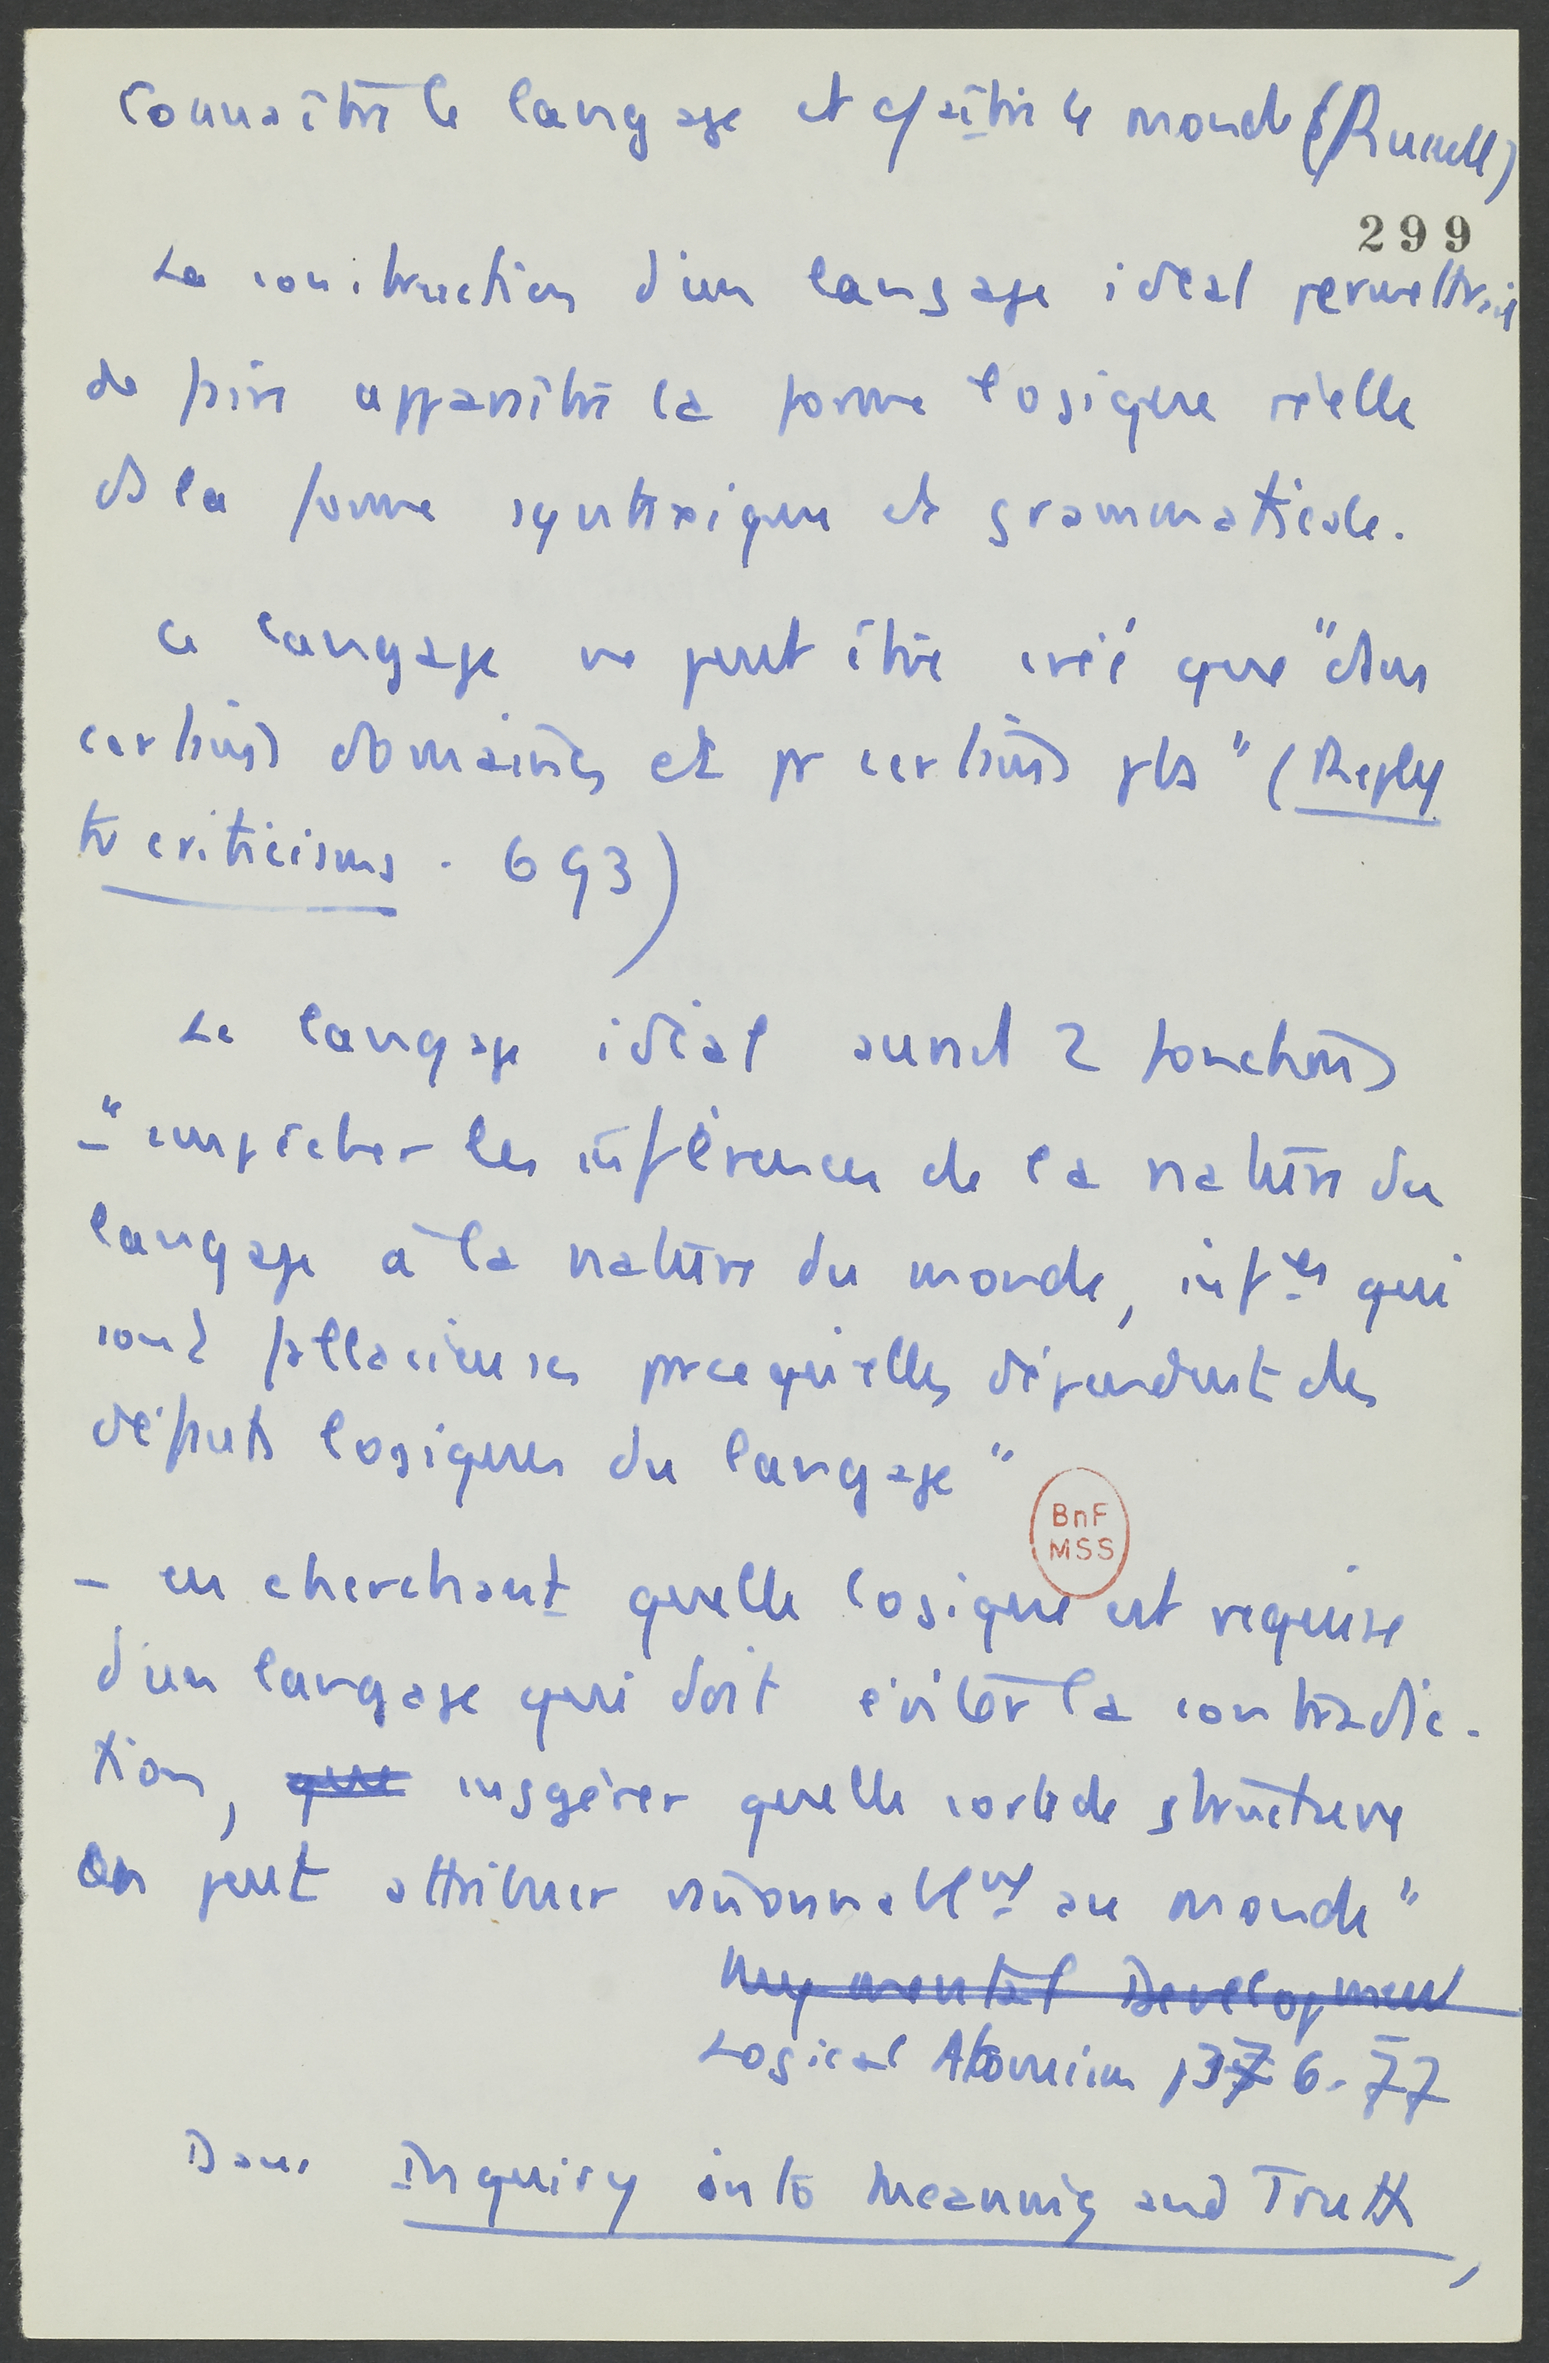 Connaître le langage et c/aître le monde (Russell)
299
La construction d'un langage idéal permettrait
de faire apparaître la forme logique réelle
ds la forme syntaxique et grammaticale.
Ce langage ne peut être créé que "dans
certains domaines et pr certains pbs" (Reply
to criticisms. 693)
Le langage idéal aurait 2 fonctions
- "empêcher les inférences de la nature du
langage à la nature du monde, inf^ces qui
sont fallacieuses parce qu'elles dépendent des
défauts logiques du langage"
BnF
MSS
- en cherchant quelle logique est requise
d'un langage qui doit éviter la contradic-
tion, que suggérer quelle sorte de structure
on peut attribuer raisonnablemt au monde"
My mental Development
Logical Atomism 376-77
Dans Inquiry into Meaning and Truth,